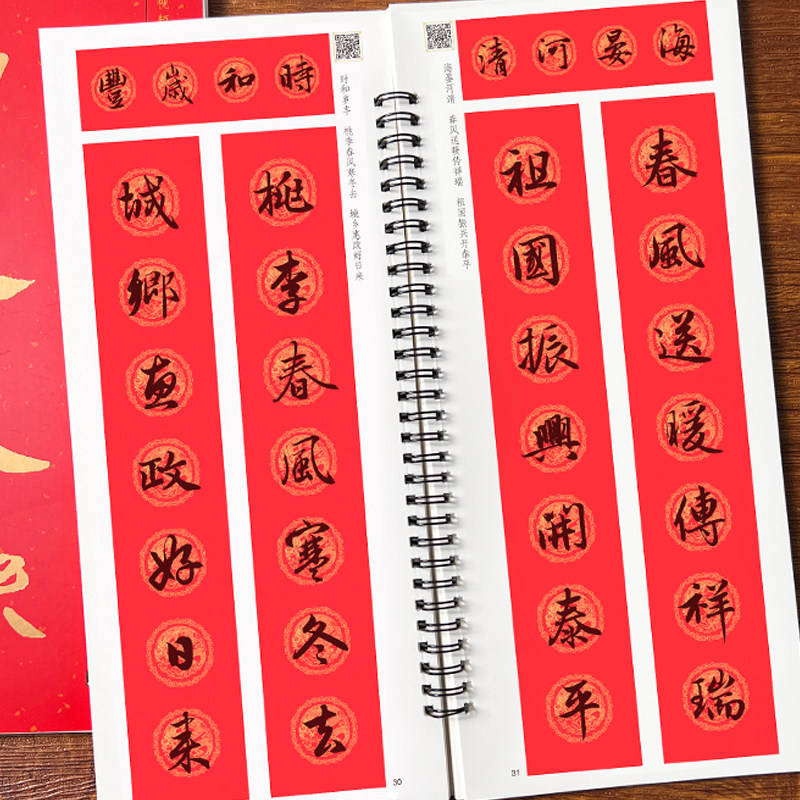 時和歲豐
桃李春風寒冬去
城鄉惠政好日来
时和岁丰 桃李春风寒冬去 城乡惠政好日来
30
海晏河清
春風送暖傳祥瑞
祖國振興開泰平
海晏河清 春风送暖传祥瑞 祖国振兴开泰平
31